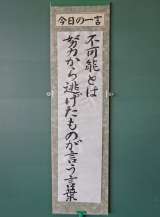 今日の一言
不可能とは
努力から逃げたものが言う言葉